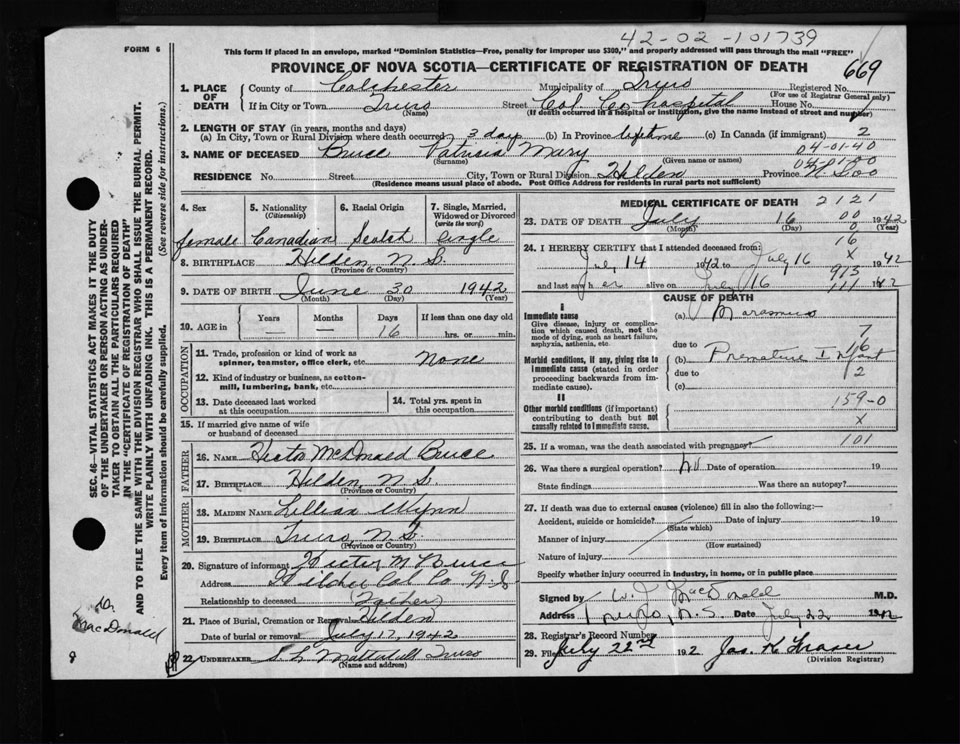 42-02-101739
FORM 6
This form if placed in an envelope, marked "Dominion Statistics—Free, penalty for improper use $300," and properly addressed will pass through the mail "FREE"
PROVINCE OF NOVA SCOTIA—CERTIFICATE OF REGISTRATION OF DEATH 669
1. PLACE OF DEATH
County of Colchester Municipality of Truro Registered No.
(For use of Registrar General only)
If in City or Town Truro Street Col. Co hospital House No.
(Name) (If death occurred in a hospital or institution, give the name instead of street and number)
2. LENGTH OF STAY (in years, months and days)
(a) In City, Town or Rural Division where death occurred 3 day (b) In Province lifetime (c) In Canada (if immigrant) 2
04-01-40
3. NAME OF DECEASED Bruce Patricia Mary
(Surname) (Given name or names)
RESIDENCE No. Street City, Town or Rural Division Hilden Province N.S.
(Residence means usual place of abode. Post Office Address for residents in rural parts not sufficient)
4. Sex female
5. Nationality (Citizenship) Canadian
6. Racial Origin Scotch
7. Single, Married, Widowed or Divorced (write the word) Single
8. BIRTHPLACE Hilden N.S.
(Province or Country)
9. DATE OF BIRTH June 30 1942
(Month) (Day) (Year)
10. AGE in Years Months Days If less than one day old
— — 16 hrs. or min.
OCCUPATION
11. Trade, profession or kind of work as spinner, teamster, office clerk, etc. None
12. Kind of industry or business, as cotton-mill, lumbering, bank, etc.
13. Date deceased last worked at this occupation
14. Total yrs. spent in this occupation
15. If married give name of wife or husband of deceased
FATHER
16. NAME Hector McDonald Bruce
17. BIRTHPLACE Hilden N.S.
(Province or Country)
MOTHER
18. MAIDEN NAME Lillian
19. BIRTHPLACE Truro, N.S.
(Province or Country)
20. Signature of informant Hector M Bruce
Address Hilden Col. Co N.S
Relationship to deceased (Father)
21. Place of Burial, Cremation or Removal Hilden
Date of burial or removal July 17, 1942
22. UNDERTAKER Truro
(Name and address)
MEDICAL CERTIFICATE OF DEATH 2121
23. DATE OF DEATH July 16 1942
(Month) (Day) (Year)
24. I HEREBY CERTIFY that I attended deceased from:
July 14 1942 to July 16 1942
and last saw h er alive on July 16 1942
CAUSE OF DEATH
I
Immediate cause
Give disease, injury or complication which caused death, not the mode of dying, such as heart failure, asphyxia, asthenia, etc.
(a) Marasmus
due to
Morbid conditions, if any, giving rise to immediate cause (stated in order proceeding backwards from immediate cause).
(b) Premature Infant
due to
(c)
II
Other morbid conditions (if important) contributing to death but not causally related to immediate cause.
159-0
x
25. If a woman, was the death associated with pregnancy? 101
26. Was there a surgical operation? No Date of operation 19
State findings Was there an autopsy?
27. If death was due to external causes (violence) fill in also the following:—
Accident, suicide or homicide? Date of injury 19
(State which)
Manner of injury
(How sustained)
Nature of injury
Specify whether injury occurred in industry, in home, or in public place
Signed by W. J. MacDonald M.D.
Address Truro, N.S. Date July 22 1942
28. Registrar's Record Number
29. Filed July 22nd 1942 Jas. K Fraser
(Division Registrar)
SEC. 46—VITAL STATISTICS ACT MAKES IT THE DUTY
OF THE UNDERTAKER OR PERSON ACTING AS UNDER-
TAKER TO OBTAIN ALL THE PARTICULARS REQUIRED
IN THE "CERTIFICATE OF REGISTRATION OF DEATH"
AND TO FILE THE SAME WITH THE DIVISION REGISTRAR WHO SHALL ISSUE THE BURIAL PERMIT.
WRITE PLAINLY WITH UNFADING INK. THIS IS A PERMANENT RECORD.
Every item of information should be carefully supplied. (See reverse side for instructions.)
Dr.
MacDonald
8